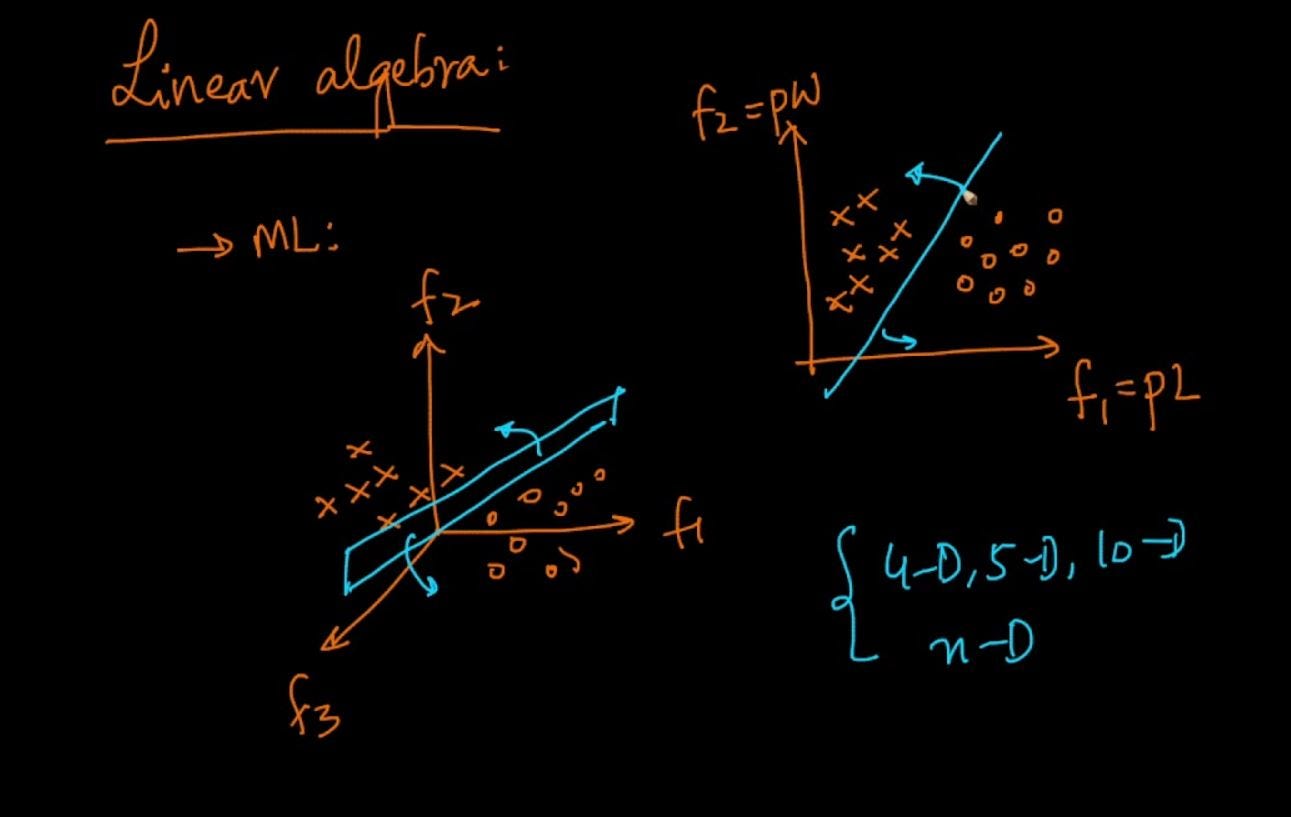 Linear algebra:
→ ML:
f2 = pW
f1 = pL
f2
f1
f3
4-D, 5-D, 10-D
n-D